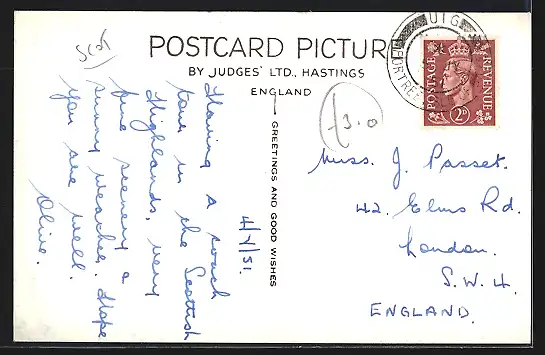 POSTCARD PICTUR
BY JUDGES' LTD., HASTINGS
ENGLAND
GREETINGS AND GOOD WISHES
Scot
£3.0
4/7/51.
Having a coach
tour in the Scottish
Highlands, very
fine scenery &
sunny weather. Hope
you are well.
Olive.
UIG
PORTREE
POSTAGE
REVENUE
2D
Miss. J. Passet.
42. Elms Rd.
London.
S.W.4.
ENGLAND.